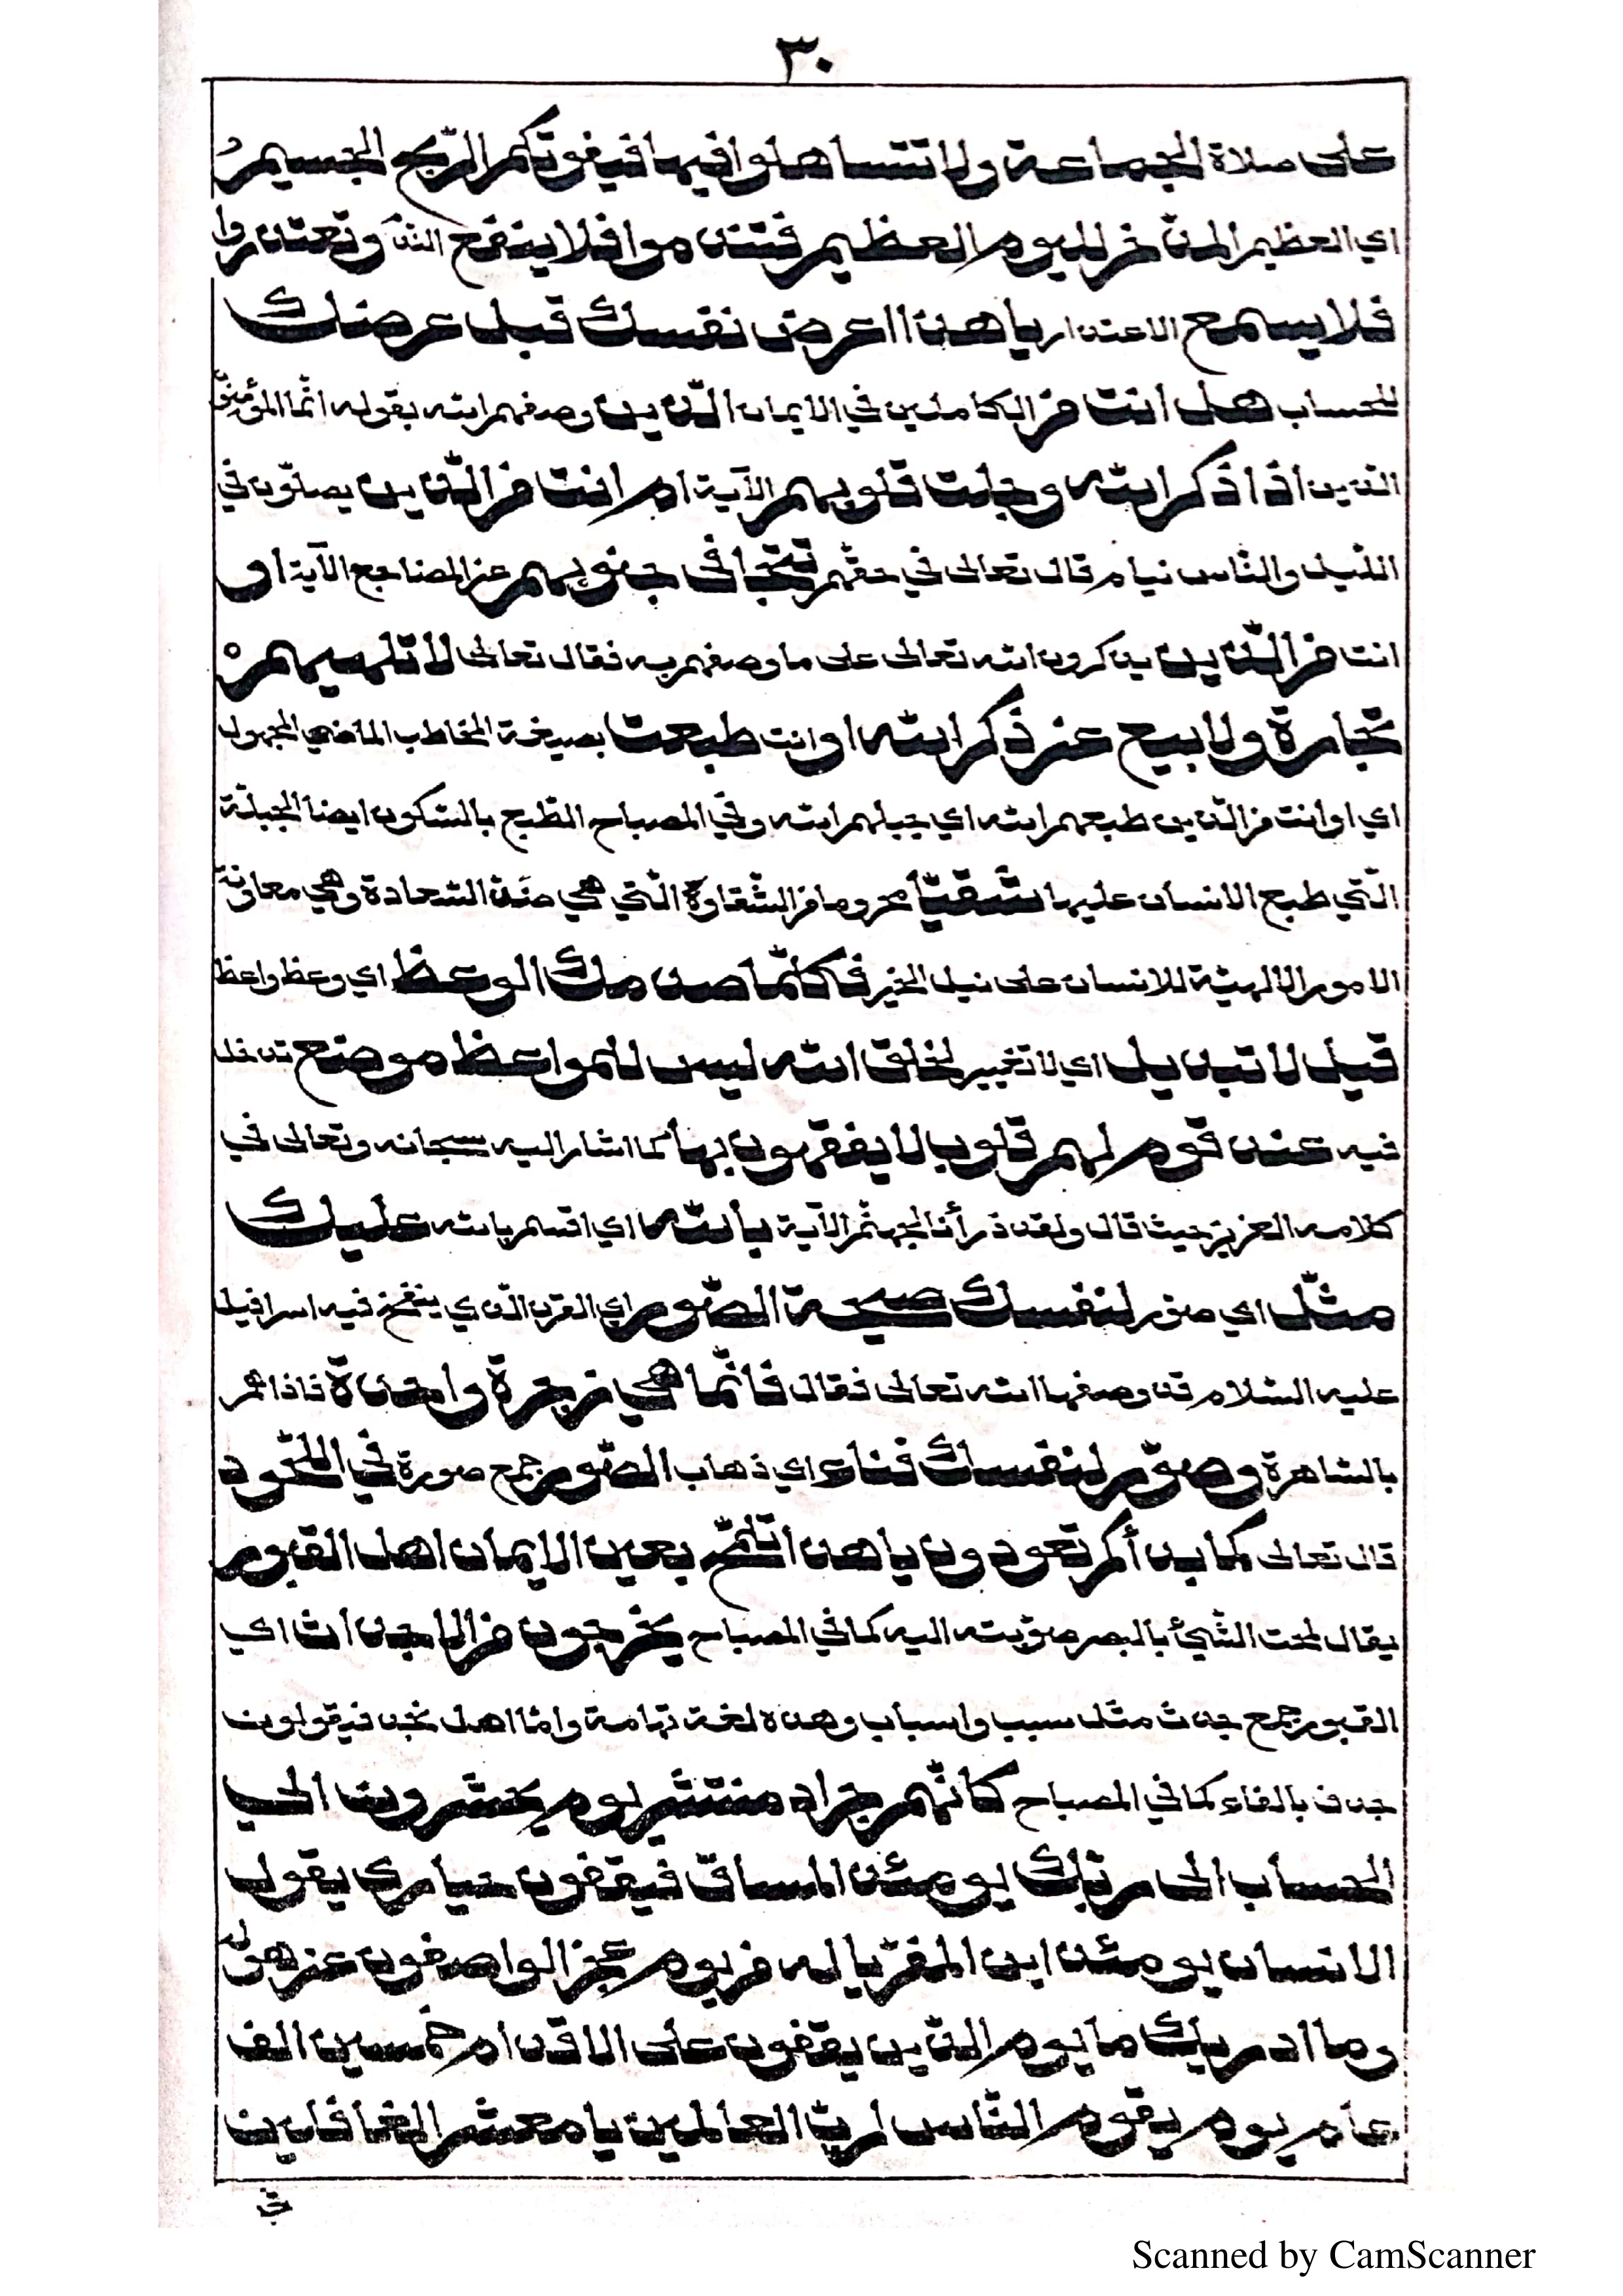 ٣٠
على صلاة الجماعة ولا تتساهلوا فيها فيفوتكم الرّبح الجسيم
اي العظيم المدّخر لليوم العظيم فتندموا فلا ينفع الندم وتعتذروا
فلا يسمع الاعتذار يا هذا اعرض نفسك قبل عرضك
للحساب هل انت من الكاملين في الايمان الّذين وصفهم الله بقوله انّما المؤمنون
الذين اذا ذكر الله وجلت قلوبهم الآية ام انت من الّذين يصلّون في
اللّيل والنّاس نيام قال تعالى في حقّهم تتجافى جنوبهم عن المضاجع الآية او
انت من الّذين يذكرون الله تعالى على ما وصفهم به فقال تعالى لا تلهيهم
تجارة ولا بيع عن ذكر الله او انت طبعت بصيغة المخاطب الماضي المجهول
اي او انت من الّذين طبعهم الله اي جبلهم الله وفي المصباح الطّبع بالسّكون ايضا الجبلّة
الّتي طبع الانسان عليها شقيّا محروما من الشّقاوة الّتي هي ضدّ السّعادة وهي معاونة
الامور الالهيّة للانسان على نيل الخير فكلّما صدمك الوعظ اي وعظ واعظ
قيل لا تبديل اي لا تغيير لخلق الله ليس للمواعظ موضع تدخل
فيه عند قوم لهم قلوب لا يفقهون بها كما اشار اليه سبحانه وتعالى في
كلامه العزيز حيث قال ولقد ذرأنا لجهنّم الآية بالله اي اقسم بالله عليك
مثّل اي صوّر لنفسك صيحة الصّور اي القرن الّذي ينفخ فيه اسرافيل
عليه السّلام قد وصفها الله تعالى فقال فانّما هي زجرة واحدة فاذا هم
بالسّاهرة وصوّر لنفسك فناء اي ذهاب الصّور جمع صورة في اللّحود
قال تعالى كما بدأكم تعودون يا هذا تلمّح بعين الايمان اهل القبور
يقال لمحت الشّيء بالبصر صوّبته اليه كما في المصباح يخرجون من الاجداث اي
القبور جمع جدث مثل سبب واسباب وهذه لغة تهامة وامّا اهل نجد فيقولون
جدف بالفاء كما في المصباح كانّهم جراد منتشر يوم يحشرون الى
الحساب الى ربّك يومئذ المساق فيقفون حيارى يقول
الانسان يومئذ اين المفرّ يا له من يوم عجز الواصفون عن هوله
وما ادريك ما يوم الذّين يقفون على الاقدام خمسين الف
عام يوم يقوم النّاس لربّ العالمين يا معشر الغافلين
Scanned by CamScanner